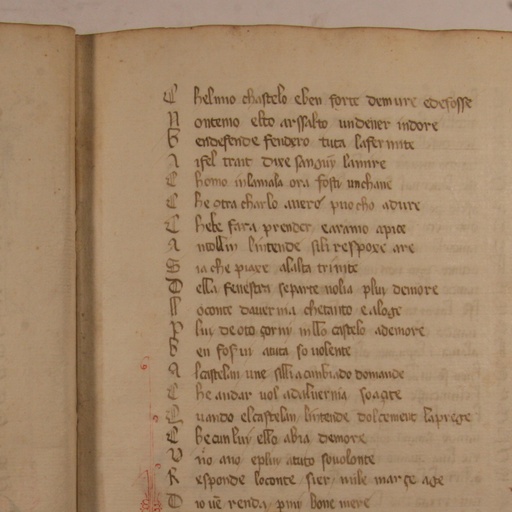 C helmio chastelo eben forte demure edefosse
N ontemo elto arssalto undener in dore
B endefende fendero tuta lafermite
A isel trait dixe sanguin lamire
C homo inlamala ora fosti unchane
C he otra charlo avero puocho adure
C hele fara prender earamo apice
A ntollin lintende sili respoxe are
S ia che piaxe alalta trinite
D ella fenestra separte nolia plui demore
L loconte davernia chetanto ealoge
P lui deoto çorni in llo castelo ademore
B en fosin atuta so volente
A lcastelan une silli acunbiado domande
C he andar vol adalvernia so açite
Q uando elcastelan lintende dolcement laprege
C he cun lui ello abia demore
U no ano eplui atuto sovolonte
R esponde loconte sier mile març age
D io ve renda pini bone mere